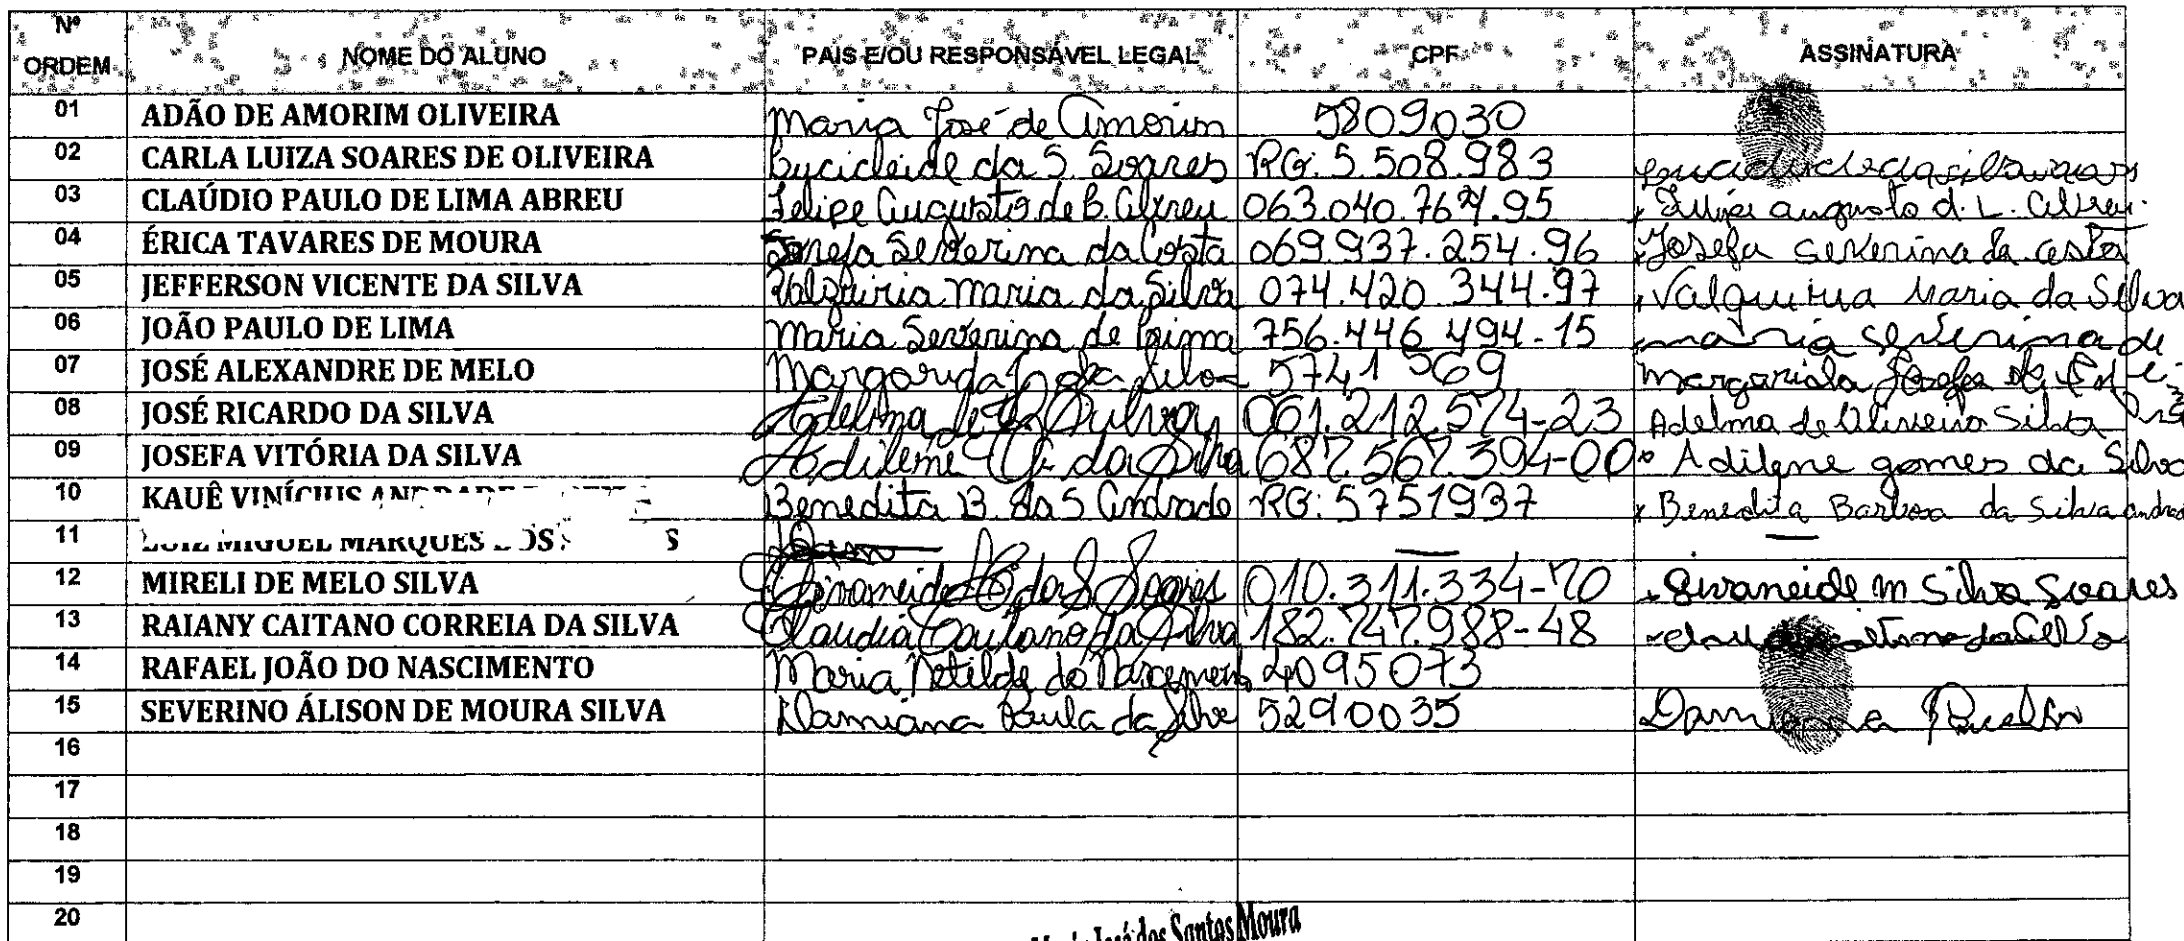 Nº ORDEM NOME DO ALUNO PAIS E/OU RESPONSÁVEL LEGAL CPF ASSINATURA
01 ADÃO DE AMORIM OLIVEIRA Maria José de Amorim 5809030
02 CARLA LUIZA SOARES DE OLIVEIRA Lucicleide da S. Soares RG: 5.508.983
03 CLAÚDIO PAULO DE LIMA ABREU Felipe Augusto de B. Abreu 063.040.764.95 Felipe augusto d. L. Abreu.
04 ÉRICA TAVARES DE MOURA Josefa Severina da Costa 069.937.254.96 Josefa Severina da costa
05 JEFFERSON VICENTE DA SILVA Valquiria Maria da Silva 074.420.344.97 Valquiria Maria da Silva
06 JOÃO PAULO DE LIMA Maria Severina de Lima 756.446.494-15 maria severina de
07 JOSÉ ALEXANDRE DE MELO Margarida J. da Silva 5741569 Margarida Josefa da
08 JOSÉ RICARDO DA SILVA Adelma de O. Silva 061.212.574-23 Adelma de Oliveira Silva
09 JOSEFA VITÓRIA DA SILVA Adilene G. da Silva 687.567.394-00 Adilene gomes da Silva
10 KAUÊ VINÍCIUS Benedita B. da S Andrade RG: 5751937 Benedita Barbosa da Silva andrade
11 LUIZ MIGUEL MARQUES DOS S — —
12 MIRELI DE MELO SILVA Givaneide M. da S. Soares 010.311.334-70 Givaneide M Silva Soares
13 RAIANY CAITANO CORREIA DA SILVA Claudia Caitano da Silva 182.747.988-48
14 RAFAEL JOÃO DO NASCIMENTO Maria Matilde do Nascimento 4095073
15 SEVERINO ÁLISON DE MOURA SILVA Damiana Paula da Silva 5290035 Damiana Paula
16
17
18
19
20
Maria José dos Santos Moura